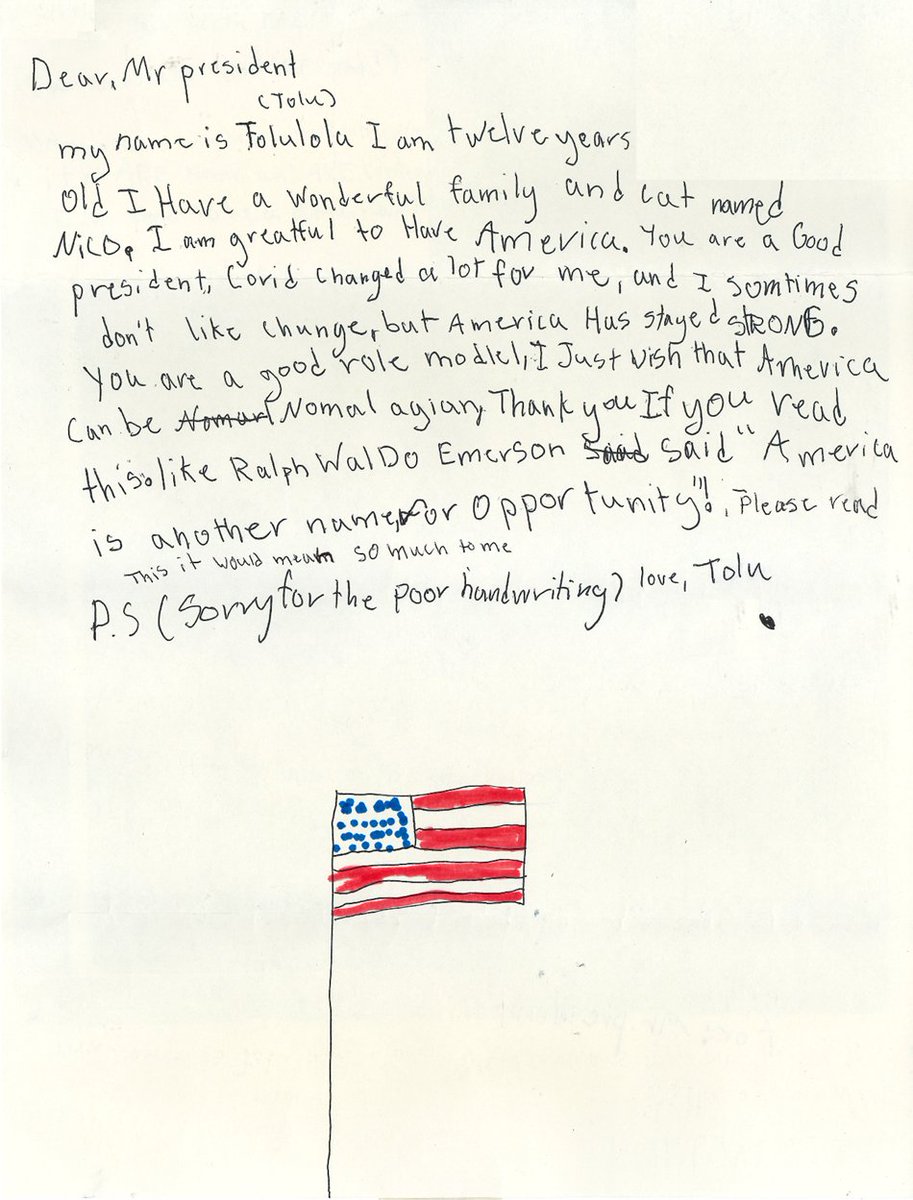 Dear, Mr president
(Tolu)
my name is Tolulola I am twelve years
old I Have a wonderful family and cat named
Nico. I am greatful to Have America. You are a Good
president, Covid changed a lot for me, and I somtimes
don't like change, but America Has stayed STRONG.
You are a good role model, I Just wish that America
can be Nomarl Nomal agian, Thank you If you read
this. like Ralph WalDo Emerson Saad said " America
is another name for Opportunity"!! Please read
This it would mean so much to me
P.S (Sorry for the poor handwriting) love, Tolu